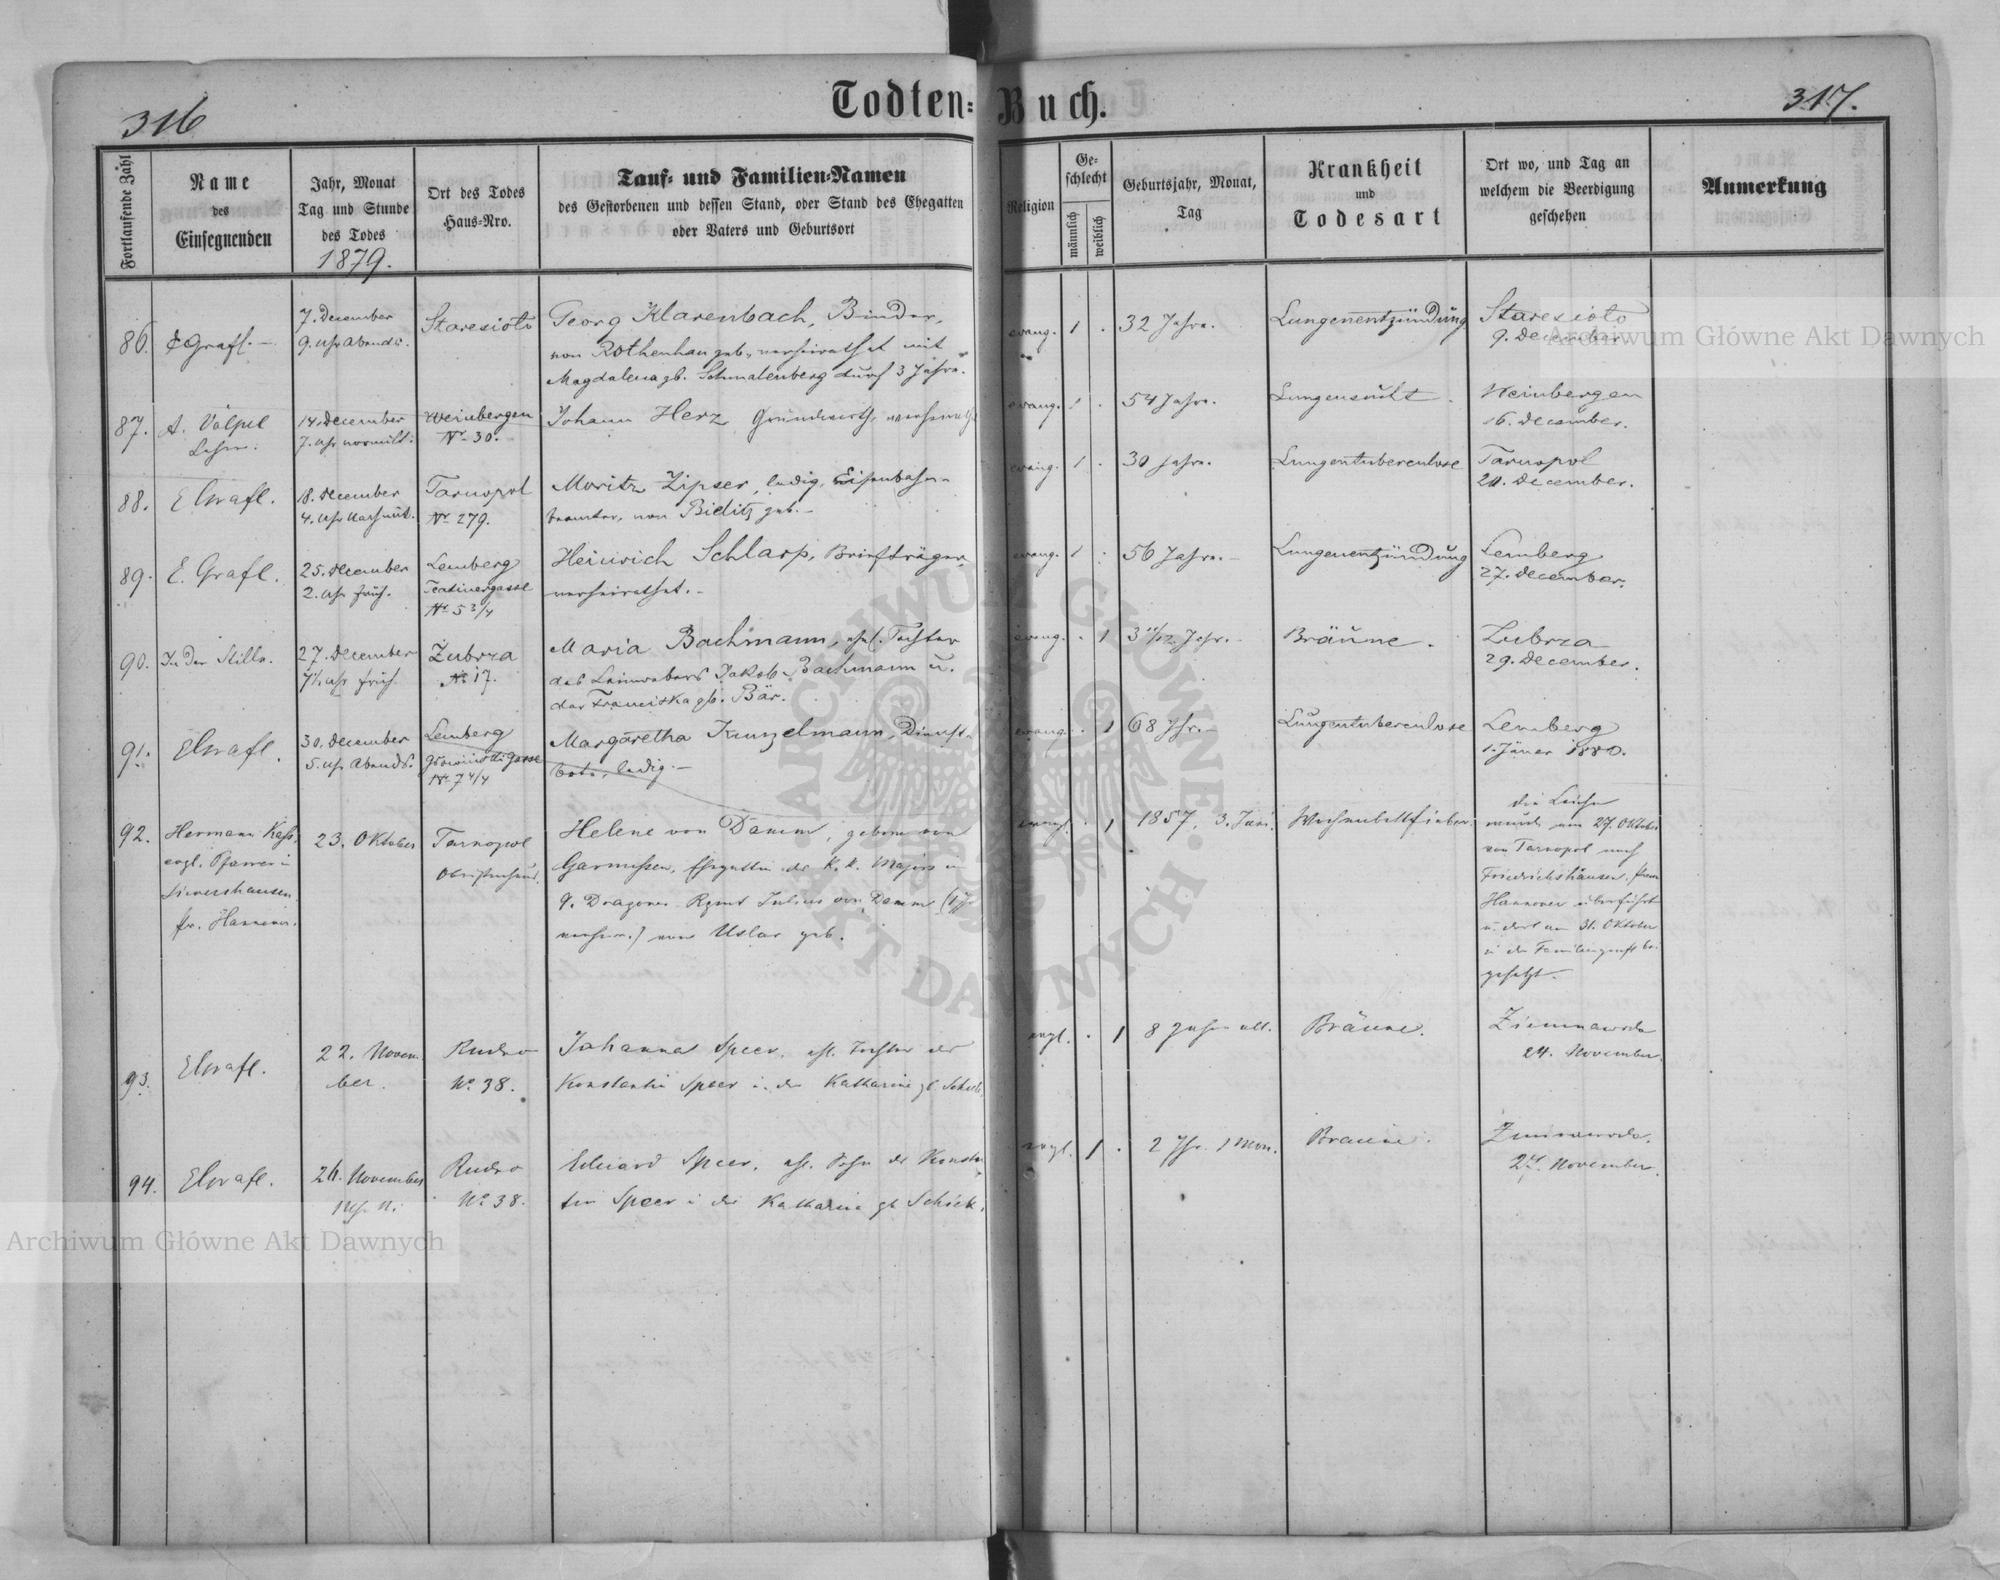 316
Todten-Buch.
317.
Fortlaufende Zahl
Name
des
Einsegnenden
Jahr, Monat
Tag und Stunde
des Todes
1879.
Ort des Todes
Haus-Nro.
Tauf- und Familien-Namen
des Gestorbenen und dessen Stand, oder Stand des Ehegatten
oder Vaters und Geburtsort
Religion
Ge-
schlecht
männlich
weiblich
Geburtsjahr, Monat,
Tag
Krankheit
und
Todesart
Ort wo, und Tag an
welchem die Beerdigung
geschehen
Anmerkung
86.
E Grafl.
7. December
9. Uhr Abends.
Staresioto
Georg Klarenbach, Binder,
von Rothenhan geb., verheirathet mit
Magdalena gb. Schmalenberg durch 3 Jahre.
evang.
1 .
32 Jahre.
Lungenentzündung
Staresioto
9. December
87.
A. Völpel
Lehrer.
14. December
7. Uhr vormitt.
Weinbergen
Nr 30.
Johann Herz, Grundwirth,
evang.
1 .
54 Jahre.
Lungensucht.
Weinbergen
16. December.
88.
E Grafl.
18. December
4. Uhr Nachmit.
Tarnopol
Nr 279.
Moritz Zipser, ledig, Eisenbahn-
beamter, von Bielitz geb.
evang.
1 .
30 Jahre.
Lungentuberculose
Tarnopol
December.
89.
E. Grafl.
25. December
2. Uhr früh.
Lemberg
Teatinergasse
Nr 5 3/4
Heinrich Schlarp, Briefträger,
verheirathet.
evang.
1 .
56 Jahre.
Lungenentzündung
Lemberg
27. December.
90.
In der Stille.
27. December
Uhr früh.
Zubrza
Nr 17.
Maria Bachmann, ehel. Tochter
des Leinwebers Jakob Bachmann u.
der Franciska gb. Bär.
evang.
. 1
3 11/12 Jahr.
Bräune.
Zubrza
29. December.
91.
E Grafl.
30. December
5. Uhr Abends.
Lemberg
Nr 7 4/4
Margaretha Kunzelmann, Dienst-
bote, ledig.
evang.
. 1
68 Jhr.
Lungentuberculose
Lemberg
1. Jäner 1880.
92.
Hermann
evgl. Pfarrer in
Sievershausen
pr. Hannover.
23. Oktober
Tarnopol
Helene von Damm, geborne von
Garmissen, Ehegattin des K. k. Majors im
9. Dragoner Rgmt Julius von Damm
von Uslar geb.
evangl.
. 1
1857, 3. Juni.
Wochenbettfieber.
die Leiche
wurde am 27. Oktober
von Tarnopol nach
Friedrichshausen,
Hannover überführt
u. dort am 31. Oktober
in der Familiengruft bei
gesetzt.
93.
E Grafl.
22. Novem
ber.
Rudno
No 38.
Johanna Speer, ehl. Tochter des
Konstantin Speer u. der Katharine gb
evgl.
. 1
8 Jahre alt.
Bräune.
Zimnawoda
24. November.
94.
E Grafl.
November
Rudno
No 38.
Eduard Speer, ehl. Sohn des Konstan
tin Speer u der Katharine gb Schick.
evgl.
1 .
2 Jhr. 1 Mon.
Bräune.
Zimnawoda.
November.
Archiwum Główne Akt Dawnych
Archiwum Główne Akt Dawnych
ARCHIWUM GŁÓWNE AKT DAWNYCH